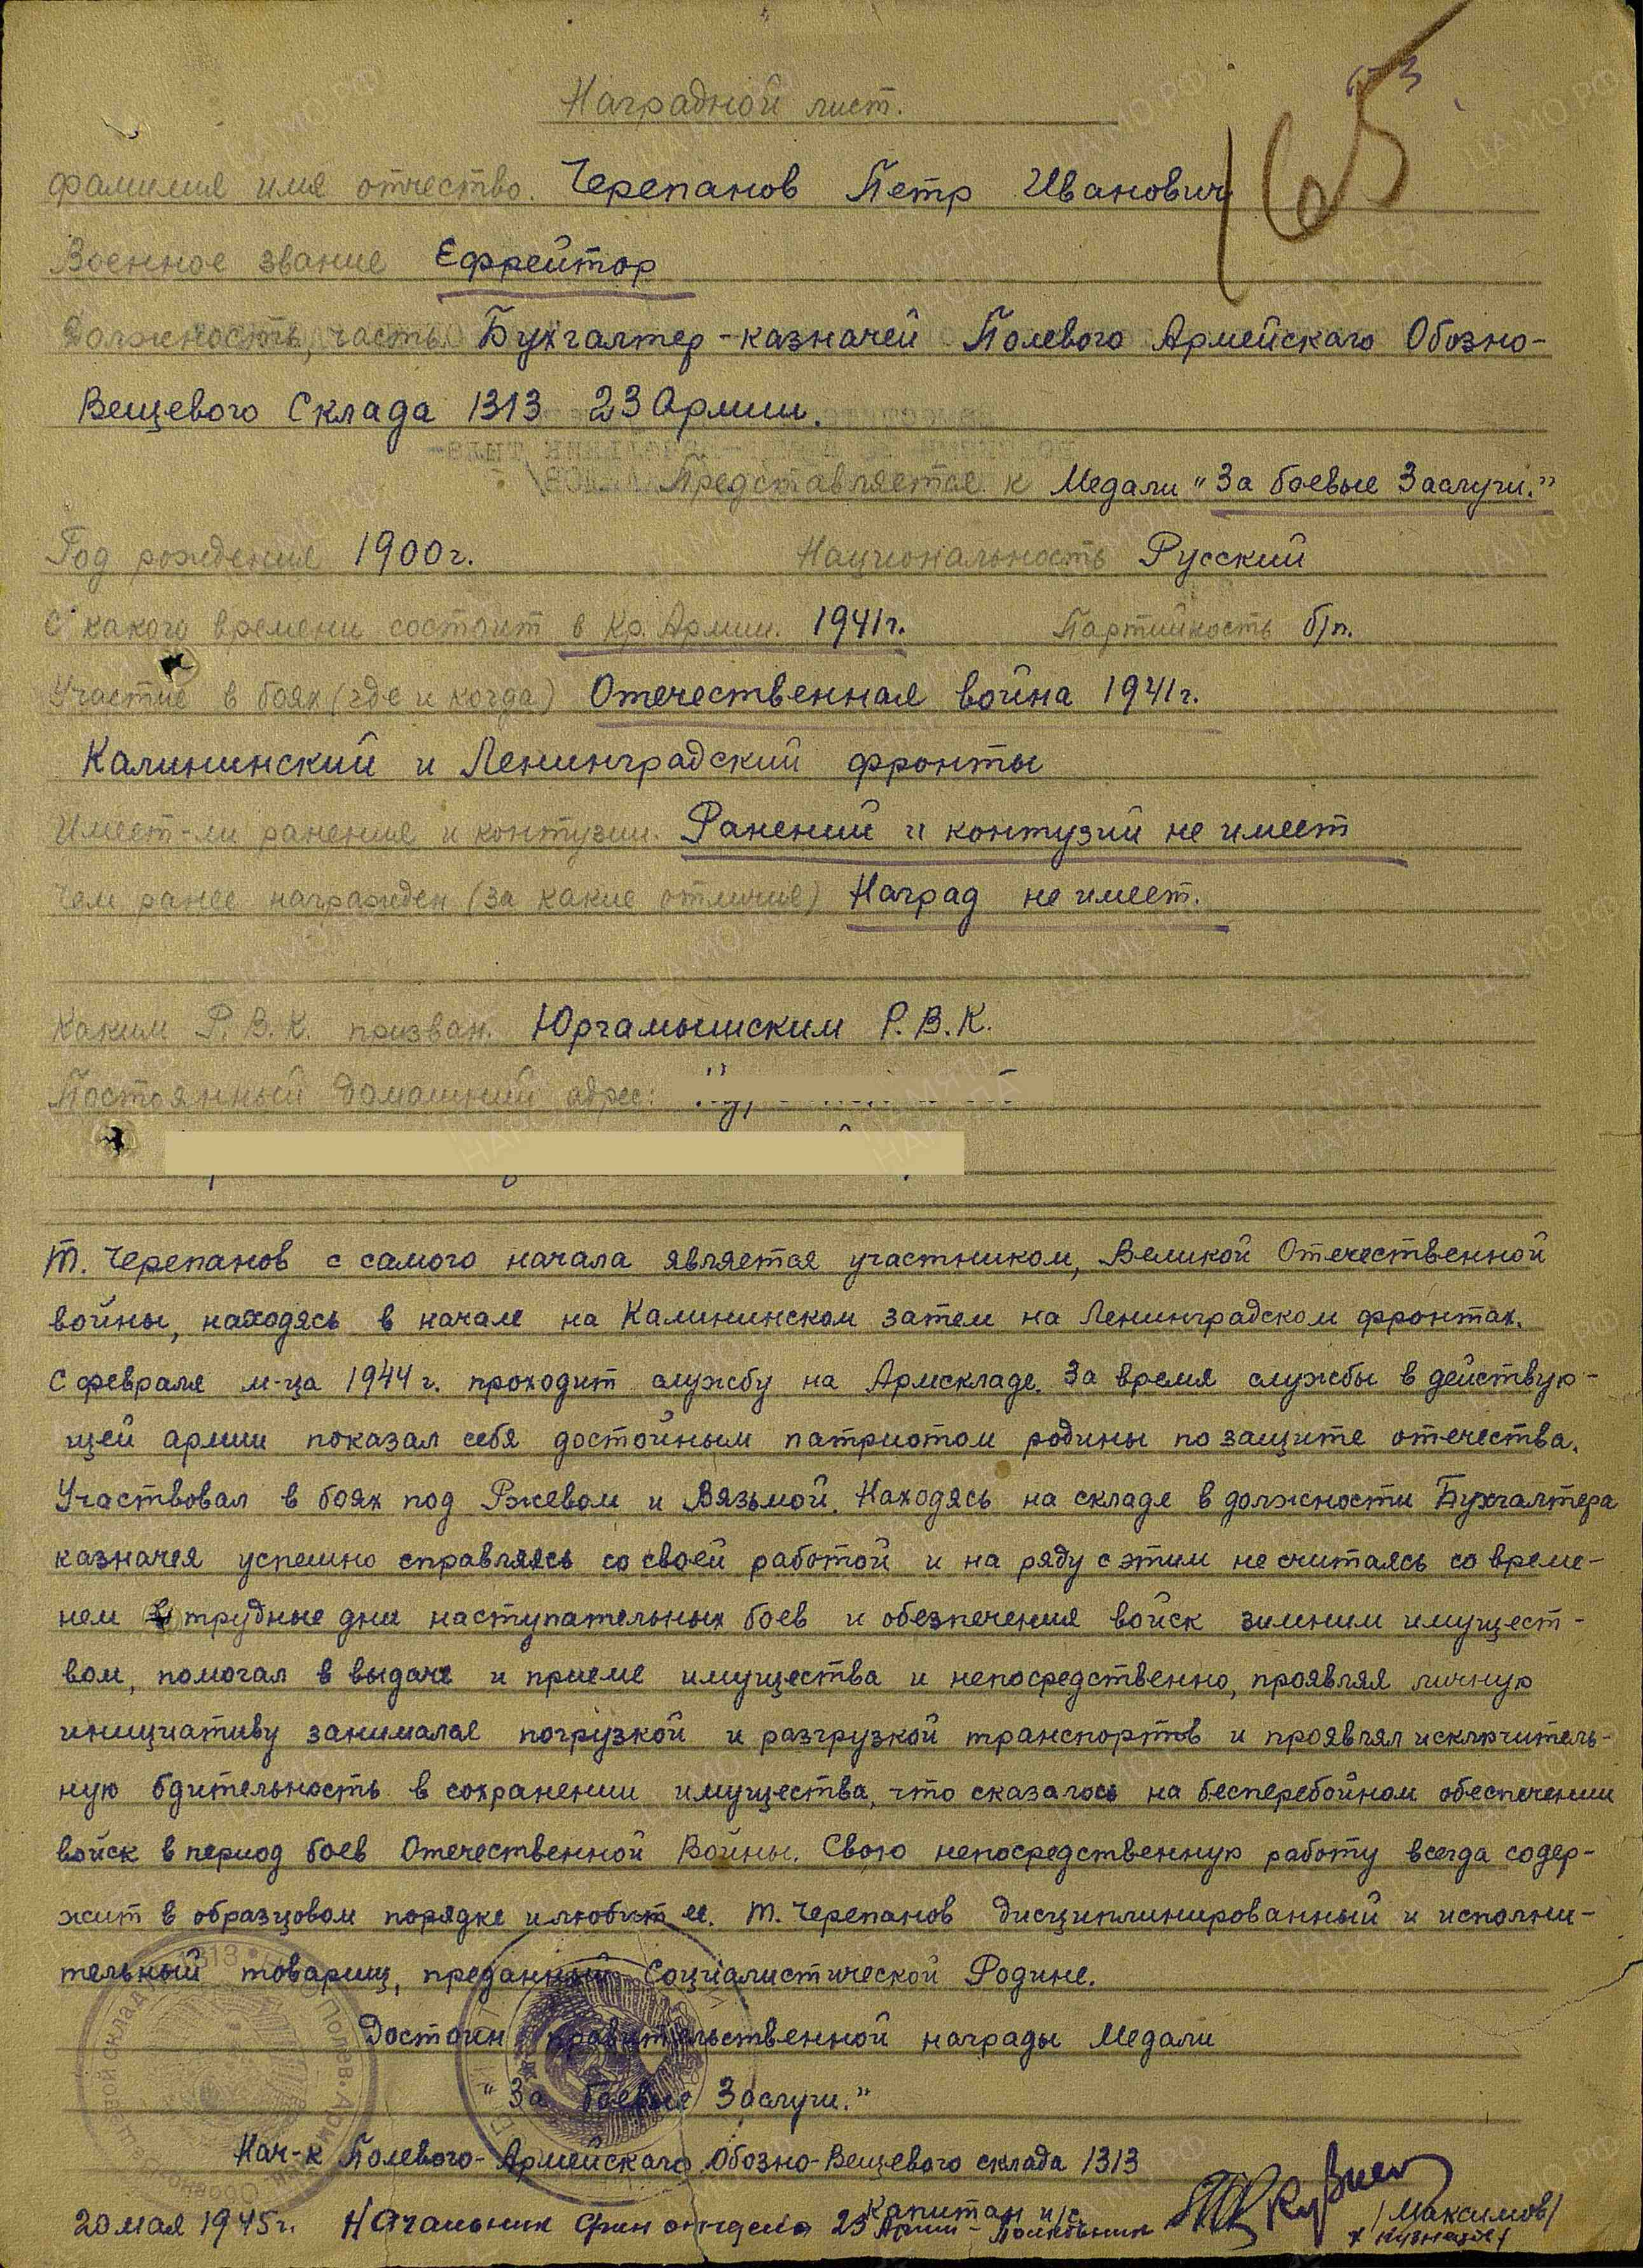 165
Наградной лист.
фамилия имя отчество. Черепанов Петр Иванович
Военное звание Ефрейтор
Должность, часть Бухгалтер-казначей Полевого Армейскаго Обозно-
Вещевого Склада 1313 23 Армии.
Представляется к Медали "За боевые Заслуги."
Год рождения 1900г. Национальность Русский
С какого времени состоит в Кр. Армии. 1941г. Партийность б/п.
Участие в боях (где и когда) Отечественная война 1941г.
Калининский и Ленинградский фронты
Имеет-ли ранения и контузии. Ранений и контузий не имеет
Чем ранее награжден (за какие отличия) Наград не имеет.
Каким Р.В.К. призван. Юргамышским Р.В.К.
Постоянный домашний адрес:
Т. Черепанов с самого начала является участником, Великой Отечественной
войны, находясь в начале на Калининском затем на Ленинградском фронтах.
С февраля м-ца 1944 г. проходит службу на Армскладе. За время службы в действую-
щей армии показал себя достойным патриотом родины по защите отечества.
Участвовал в боях под Ржевом и Вязьмой. Находясь на складе в должности Бухгалтера
казначея успешно справляясь со своей работой и на ряду с этим не считаясь со време-
нем в трудные дни наступательных боев и обезпечения войск зимним имущест-
вом, помогал в выдаче и приеме имущества и непосредственно, проявляя личную
инициативу занимался погрузкой и разгрузкой транспортов и проявлял исключитель-
ную бдительность в сохранении имущества, что сказалось на бесперебойном обеспечении
войск в период боев Отечественной Войны. Свою непосредственную работу всегда содер-
жит в образцовом порядке и любит ее. Т. Черепанов дисциплинированный и исполни-
тельный товарищ, преданный Социалистической Родине.
Достоин правительственной награды Медали
"За боевые Заслуги."
Нач-к Полевого-Армейскаго Обозно-Вещевого склада 1313
Капитан и/с /Максимов/
20 мая 1945г. Начальник финотдела 23 Армии - Полковник